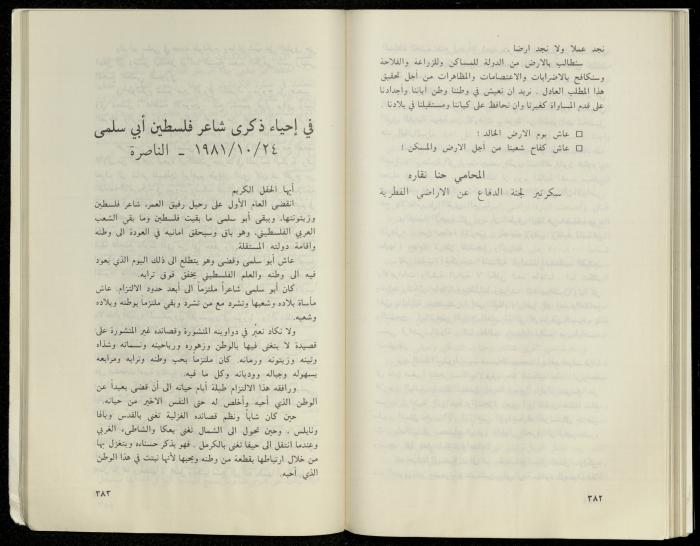 نجد عملا ولا نجد ارضا
سنطالب بالارض من الدولة للمساكن وللزراعة والفلاحة
وسنكافح بالاضرابات والاعتصامات والمظاهرات من أجل تحقيق
هذا المطلب العادل . نريد ان نعيش في وطننا وطن آبائنا وأجدادنا
على قدم المساواة كغيرنا وان نحافظ على كياننا ومستقبلنا في بلادنا .
□ عاش يوم الارض الخالد !
□ عاش كفاح شعبنا من أجل الارض والمسكن !
المحامي حنا نقاره
سكرتير لجنة الدفاع عن الاراضي القطرية
٣٨٢
في إحياء ذكرى شاعر فلسطين أبي سلمى
٢٤/١٠/١٩٨١ - الناصرة
أيها الحفل الكريم
انقضى العام الأول على رحيل رفيق العمر، شاعر فلسطين
وزيتونتها، ويبقى أبو سلمى ما بقيت فلسطين وما بقي الشعب
العربي الفلسطيني، وهو باق وسيحقق امانيه في العودة الى وطنه
وأقامة دولته المستقلة.
عاش أبو سلمى وقضى وهو يتطلع الى ذلك اليوم الذي يعود
فيه الى وطنه والعلم الفلسطيني يخفق فوق ترابه.
كان أبو سلمى شاعراً ملتزماً الى أبعد حدود الالتزام. عاش
مأساة بلاده وشعبها وتشرد مع من تشرد وبقي ملتزماً بوطنه وبلاده
وشعبه.
ولا تكاد تعثر في دواوينه المنشورة وقصائده غير المنشورة على
قصيدة لا يتغنى فيها بالوطن وزهوره ورياحينه ونسماته وشذاه
وتينه وزيتونه ورمانه. كان ملتزماً بحب وطنه وترابه ومرابعه
بسهوله وجباله ووديانه وكل ما فيه.
ورافقه هذا الالتزام طيلة أيام حياته الى أن قضى بعيداً عن
الوطن الذي أحبه وأخلص له حتى النفس الاخير من حياته.
حين كان شاباً ونظم قصائده الغزلية تغنى بالقدس ويافا
ونابلس . وحين تحول الى الشمال تغنى بعكا والشاطىء الغربي
وعندما انتقل الى حيفا تغنى بالكرمل . فهو يذكر حسناءه ويتغزل بها
من خلال ارتباطها بقطعة من وطنه ويحبها لأنها نبتت في هذا الوطن
الذي أحبه.
٣٨٣